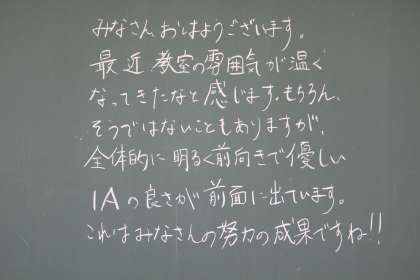 みなさん おはようございます。
最近 教室の雰囲気が温く
なってきたなと感じます。もちろん、
そうではないこともありますが、
全体的に明るく前向きで優しい
1Aの良さが前面に出ています。
これはみなさんの努力の成果ですね!!